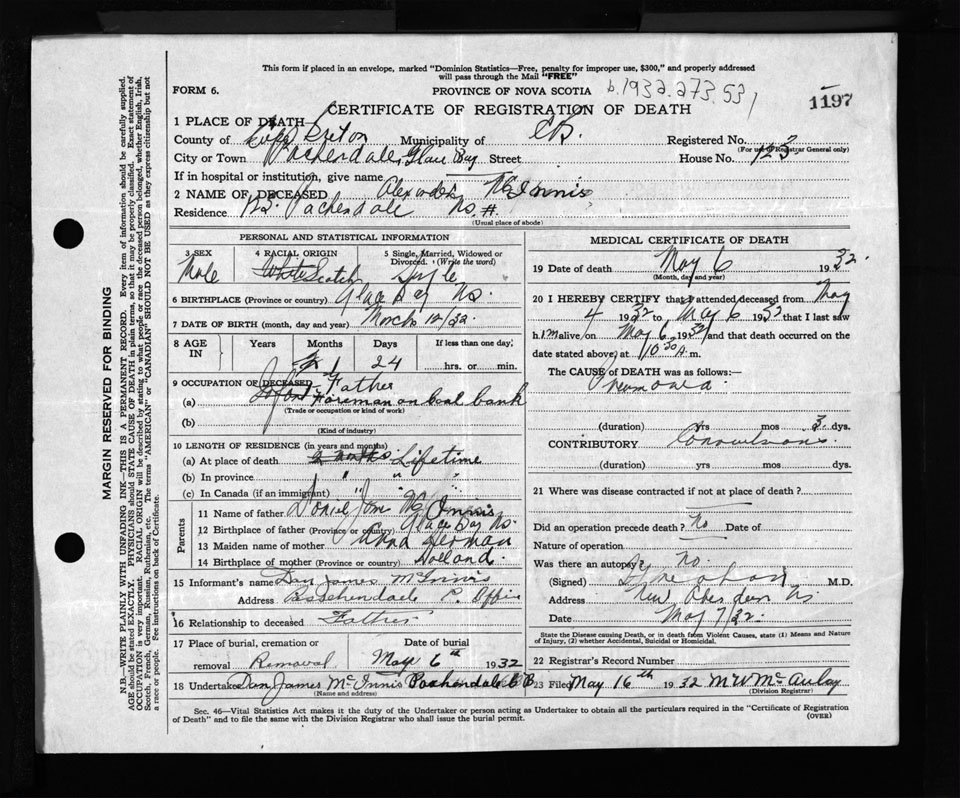 This form if placed in an envelope, marked "Dominion Statistics—Free, penalty for improper use, $300," and properly addressed
will pass through the Mail "FREE"
FORM 6.
PROVINCE OF NOVA SCOTIA
b.1932.273.531
1197
CERTIFICATE OF REGISTRATION OF DEATH
1 PLACE OF DEATH
County of Cape Breton Municipality of C.B. Registered No.
(For use of Registrar General only)
City or Town Pachendale, Glace Bay Street House No. 123
If in hospital or institution, give name
2 NAME OF DECEASED Alexander McInnis
Residence Pachendale N.S.
(Usual place of abode)
PERSONAL AND STATISTICAL INFORMATION
3 SEX Male
4 RACIAL ORIGIN White Scotch
5 Single, Married, Widowed or Divorced. (Write the word) Single
6 BIRTHPLACE (Province or country) Glace Bay N.S.
7 DATE OF BIRTH (month, day and year) March 12/32.
8 AGE IN
Years Months Days If less than one day,
1 24 hrs. or min.
9 OCCUPATION OF DECEASED Father
(a) Infant Foreman on Coal bank
(Trade or occupation or kind of work)
(b)
(Kind of industry)
10 LENGTH OF RESIDENCE (in years and months)
(a) At place of death 2 months Lifetime
(b) In province " "
(c) In Canada (if an immigrant) " "
Parents
11 Name of father Daniel James McInnis
12 Birthplace of father (Province or country) Glace Bay N.S.
13 Maiden name of mother Anna Herman
14 Birthplace of mother (Province or country) Holland.
15 Informant's name Dan James McInnis
Address Passchendaele P. Office
16 Relationship to deceased Father
17 Place of burial, cremation or removal Removal
Date of burial May 6th 1932
18 Undertaker Dan James McInnis Pachendale C B
(Name and address)
MEDICAL CERTIFICATE OF DEATH
19 Date of death May 6 1932.
(Month, day and year)
20 I HEREBY CERTIFY that I attended deceased from May
4 1932 to May 6 1932 that I last saw
him alive on May 6, 1932 and that death occurred on the
date stated above, at 10 30 A m.
The CAUSE of DEATH was as follows:
Pneumonia.
(duration) yrs mos 3 dys.
CONTRIBUTORY Convulsions.
(duration) yrs mos dys.
21 Where was disease contracted if not at place of death?
Did an operation precede death? No Date of
Nature of operation
Was there an autopsy? No.
(Signed) M.D.
Address New Aberdeen NS
Date May 7/32.
State the Disease causing Death, or in death from Violent Causes, state (1) Means and Nature
of Injury, (2) whether Accidental, Suicidal or Homicidal.
22 Registrar's Record Number
23 Filed May 16th 1932 M W McAulay
(Division Registrar)
Sec. 46—Vital Statistics Act makes it the duty of the Undertaker or person acting as Undertaker to obtain all the particulars required in the "Certificate of Registration
of Death" and to file the same with the Division Registrar who shall issue the burial permit.
(OVER)
MARGIN RESERVED FOR BINDING
N.B.—WRITE PLAINLY WITH UNFADING INK—THIS IS A PERMANENT RECORD. Every item of information should be carefully supplied.
AGE should be stated EXACTLY. PHYSICIANS should STATE CAUSE OF DEATH in plain terms, so that it may be properly classified. Exact statement of
OCCUPATION is very important. RACIAL ORIGIN will be described by stating to what people or race the deceased person belonged, whether English, Irish,
Scotch, French, German, Russian, Ruthenian, etc. The terms "AMERICAN" or "CANADIAN" SHOULD NOT BE USED as they express citizenship but not
a race or people. See instructions on back of Certificate.